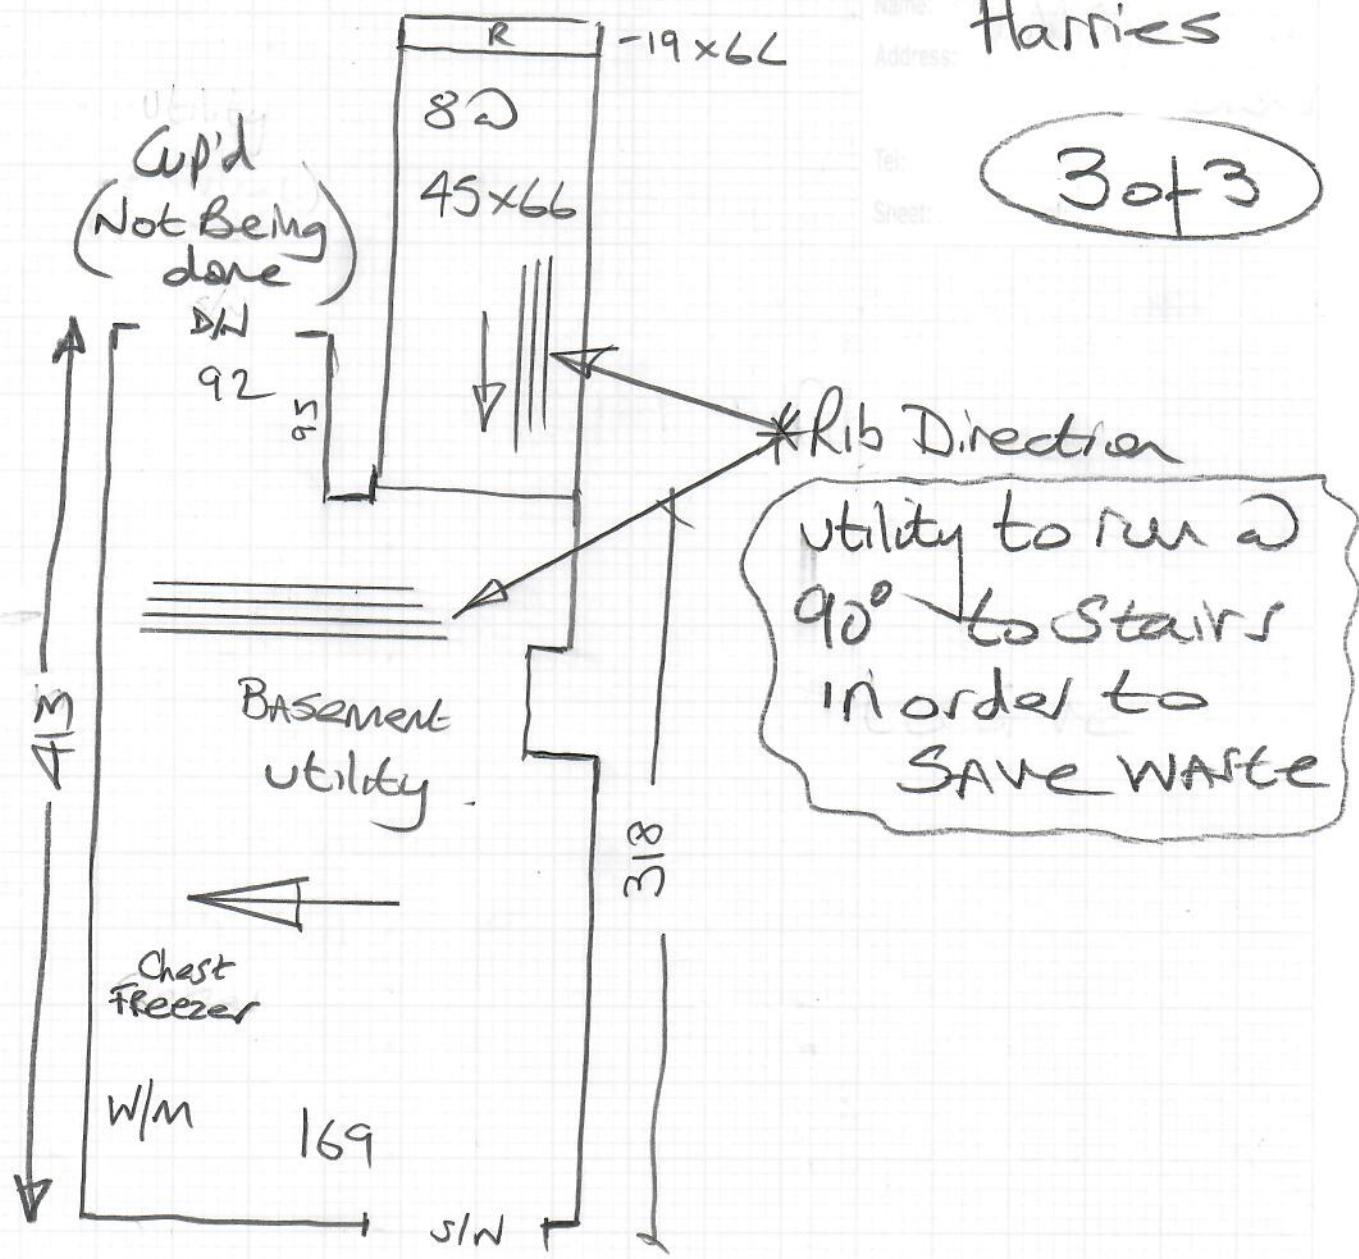 Name:
Harries
Address:
Tel:
Sheet:
3 of 3
R
-19x66
8@
45x66
Cup'd
(Not Being
done)
D/N
92
95
*Rib Direction
utility to run @
90° to Stairs
in order to
SAVE WASTE
413
Basement
utility
318
Chest
Freezer
W/M
169
S/W